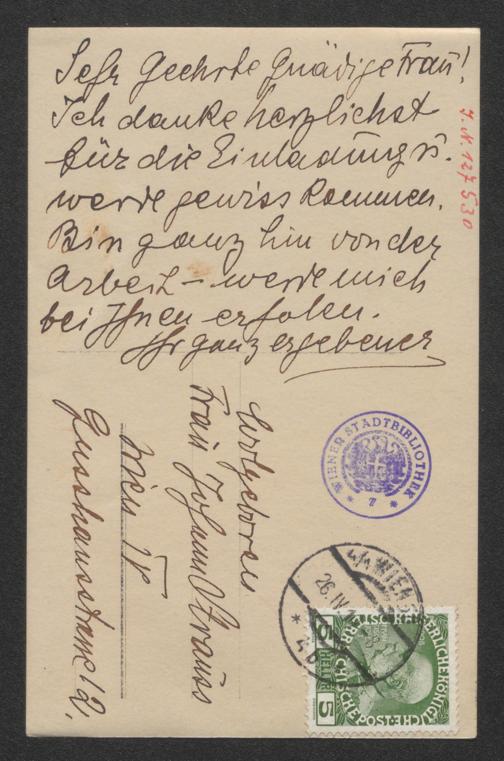 Sehr Geehrte Gnädige Frau!
Ich danke herzlichst
für die Einladung u.
werde gewiss kommen.
Bin ganz hin von der
Arbeit – werde mich
bei Ihnen erholen.
Ihr ganz ergebener
J.N. 127530
Frau Johann Strauss
Wien IV
Gusshausstrasse 12.
WIENER STADTBIBLIOTHEK
* 7 *
WIEN
26.IV.
5 HELLER 5